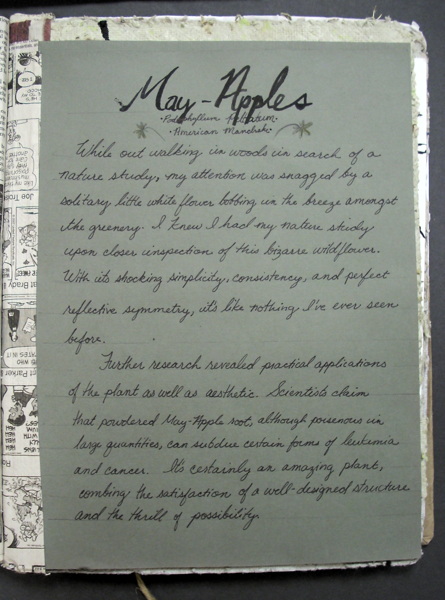 May-Apples
·Podophyllum Peltatum·
·American Mandrake·
While out walking in woods in search of a
nature study, my attention was snagged by a
solitary little white flower bobbing in the breeze amongst
the greenery. I knew I had my nature study
upon closer inspection of this bizarre wildflower.
With its shocking simplicity, consistency, and perfect
reflective symmetry, it's like nothing I've ever seen
before.
Further research revealed practical applications
of the plant as well as aesthetic. Scientists claim
that powdered May-Apple root, although poisonous in
large quantities, can subdue certain forms of leukemia
and cancer. It's certainly an amazing plant,
combing the satisfaction of a well-designed structure
and the thrill of possibility.
Joe Tro
at Brady